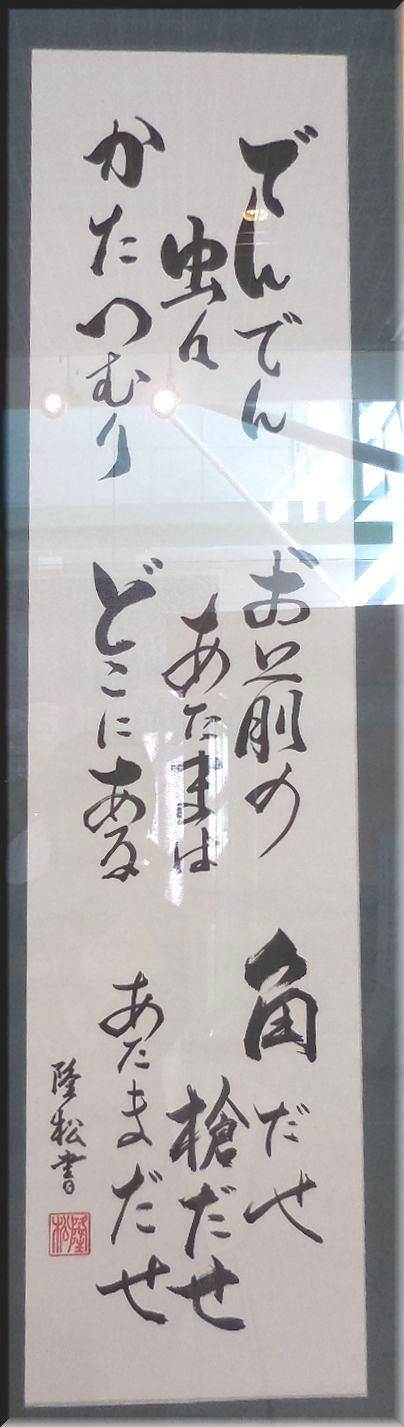 でんでん
虫々
かたつむり
お前の
あたまは
どこにある
角だせ
槍だせ
あたまだせ
隆松書
隆松